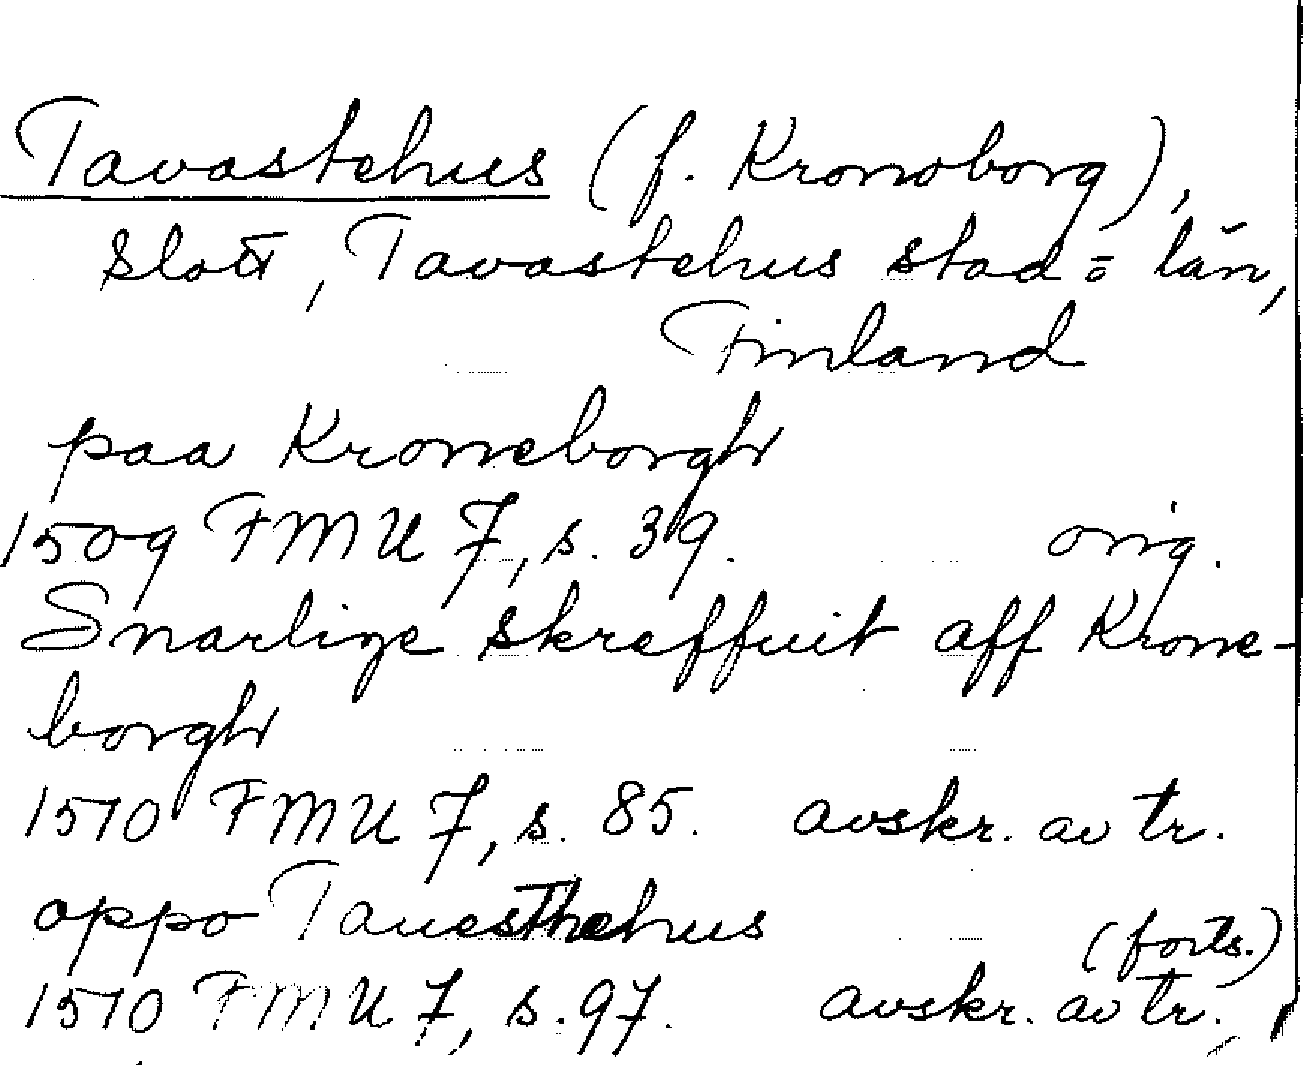 Tavastehus (f. Kronoborg),
slott, Tavastehus stad o län,
Finland
paa Kroneborgh
1509 FMU 7, s. 39. orig.
Snarlige skreffuit aff Krone-
borgh
1510 FMU 7, s. 85. avskr. av tr.
oppo Tauesthehus
(forts.)
1510 FMU 7, s. 97. avskr. av tr.